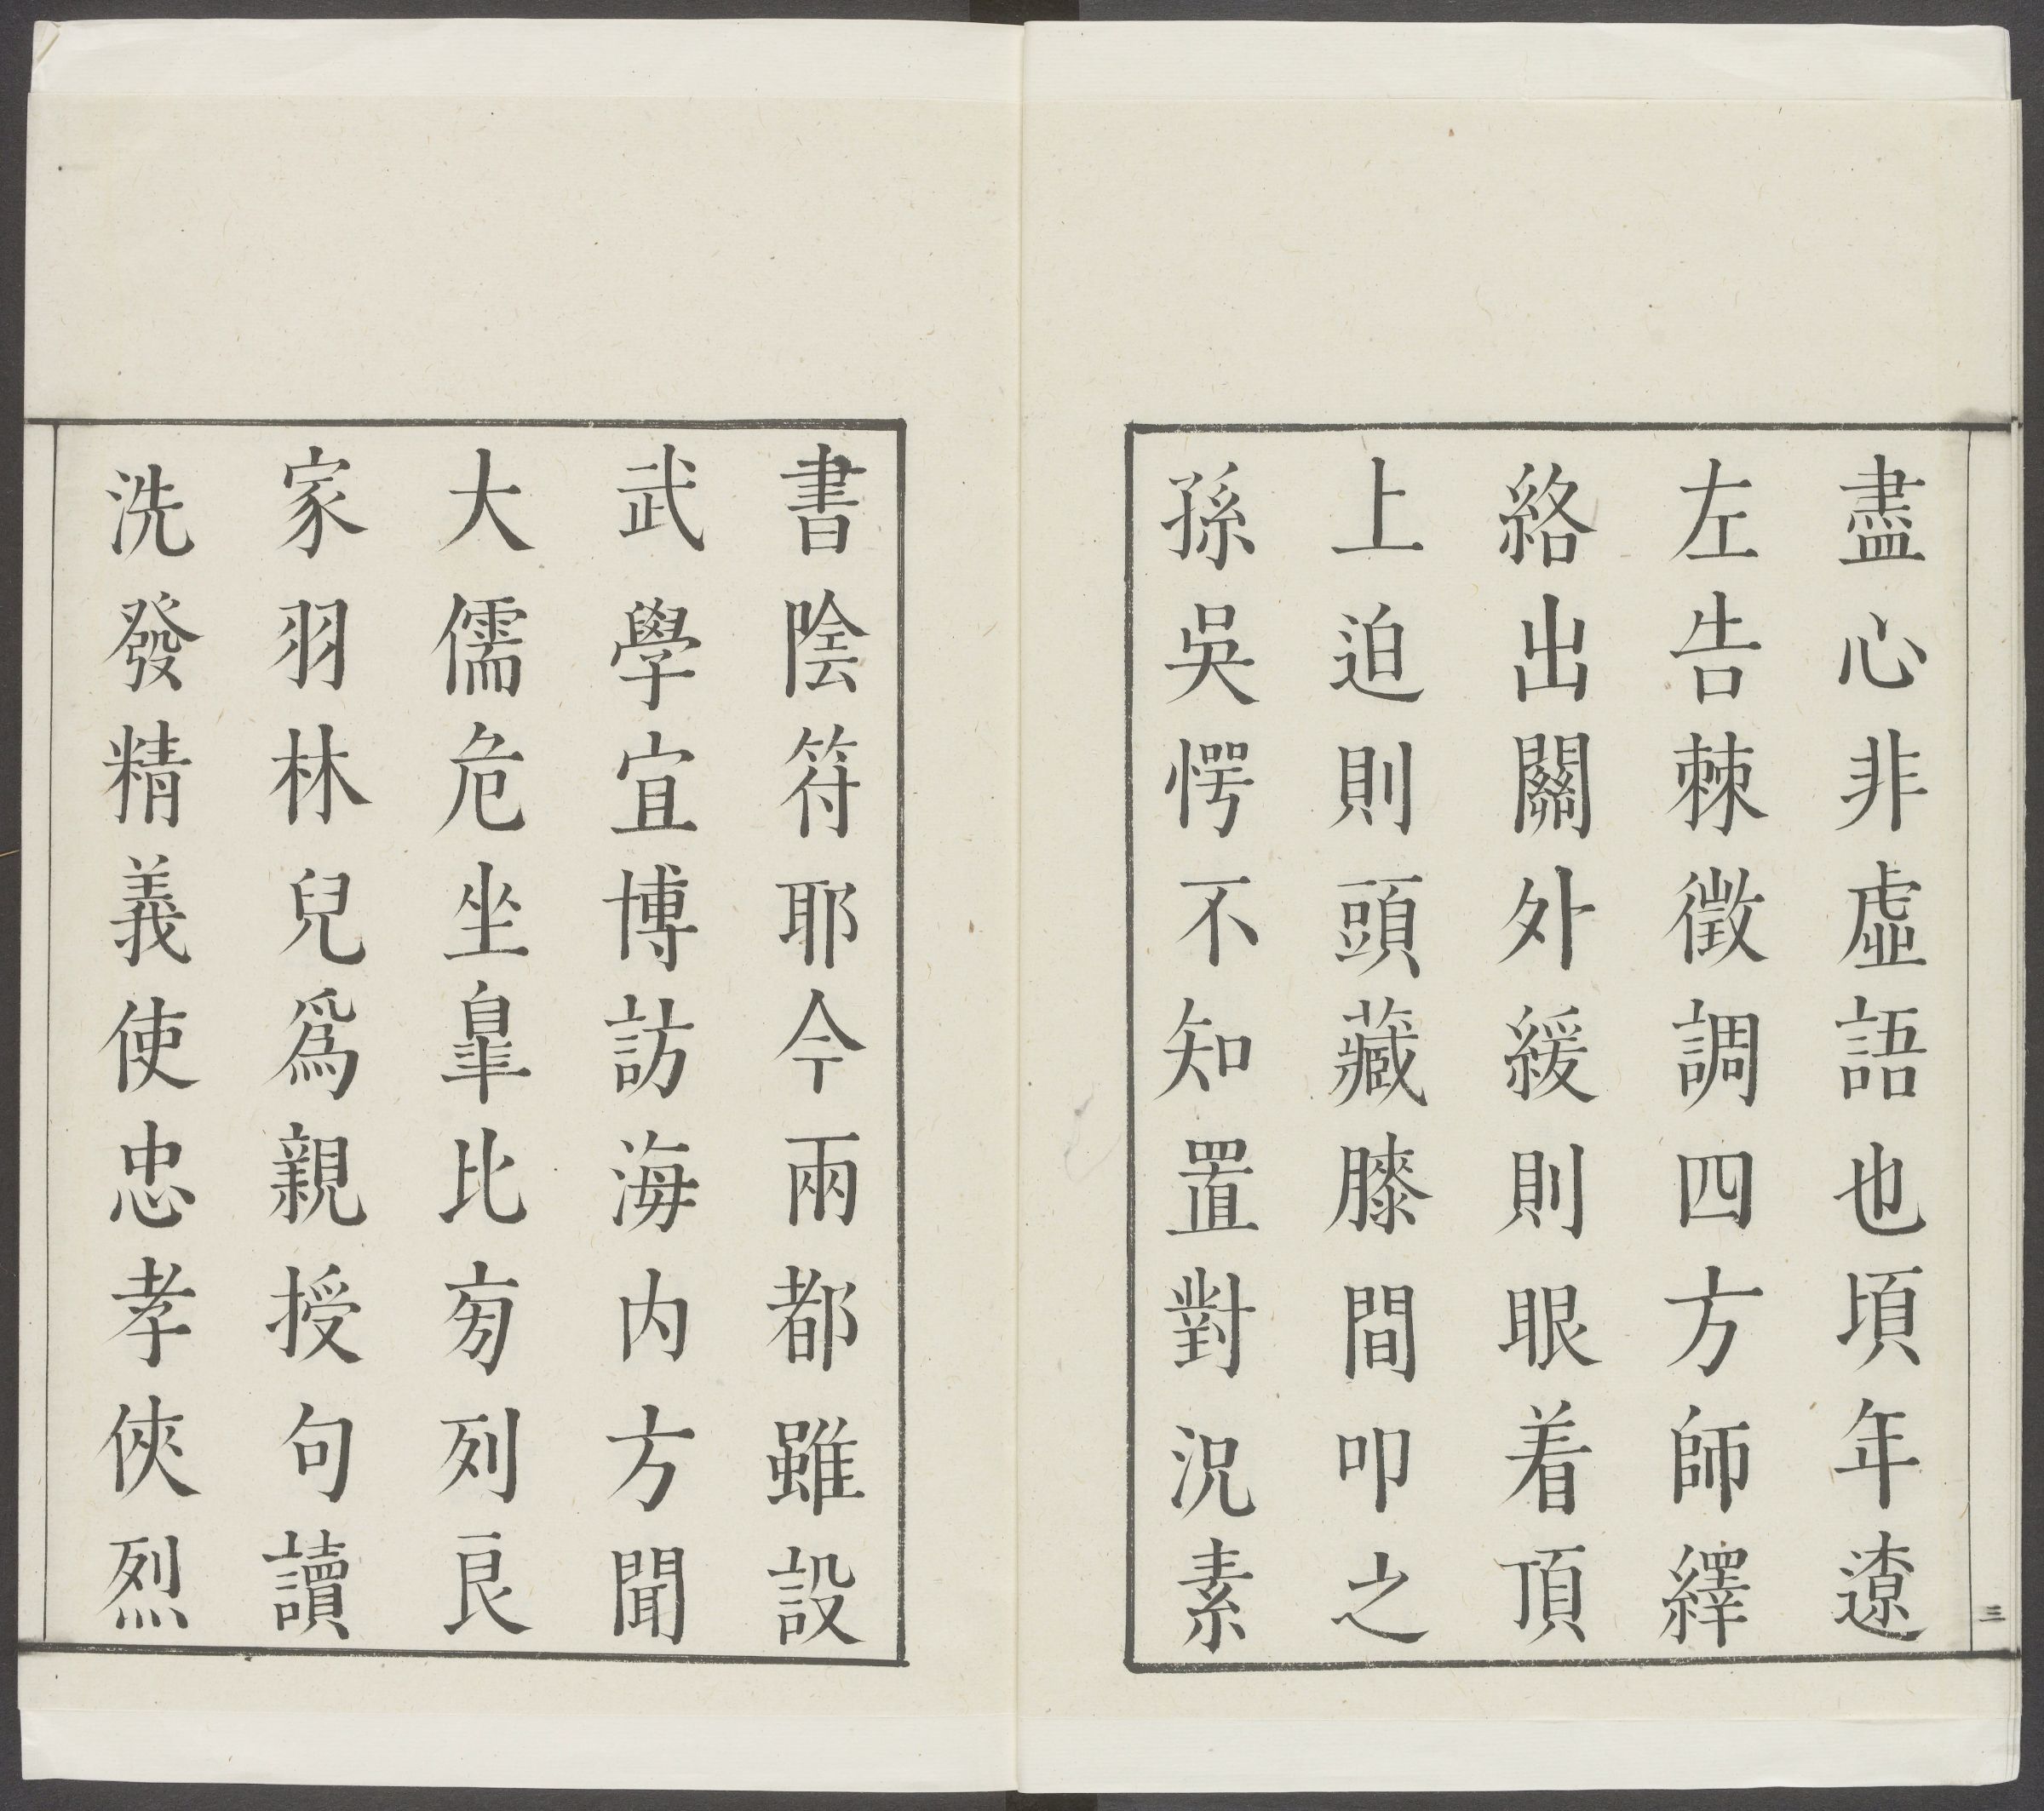 盡心非虛語也頃年遼
左告棘徵調四方師繹
絡出關外緩則眼着頂
上迫則頭藏膝間叩之
孫吳愕不知置對況素
三
書陰符耶今兩都雖設
武學宜博訪海内方聞
大儒危坐皐比旁列良
家羽林兒爲親授句讀
洗發精義使忠孝俠烈